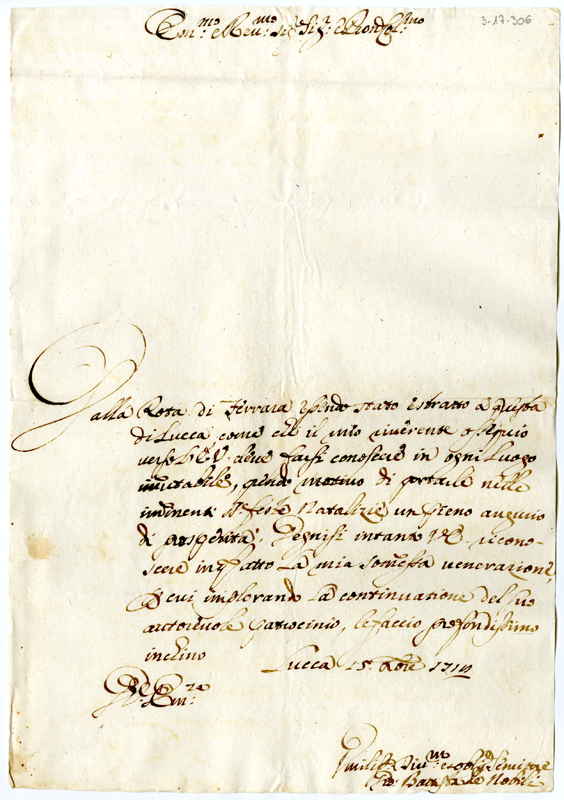 3-17-306
Em.mo e Rev.mo Sig.r Sig.r e Pron Col.mo
Dalla Rota di Ferrara essendo stato estratto a questa
di Lucca come che il mio riverente ossequio
verso l'E.V. deve farsi conoscere in ogni luogo
immutabile, prendo motivo di portarle nelle
imminenti SS. feste Natalizie un pieno augurio
di prosperità. Degnisi intanto V.E. ricono-
scere in quest'atto la mia somessa venerazione,
e cui implorando la continuazione del suo
autorevole patrocinio, le faccio profondissimo
inchino Lucca 15. Xbre 1714
D.V.Em.za
Umiliss.mo Div.mo et obl.mo Servitore
Gio: Batista de Nobili